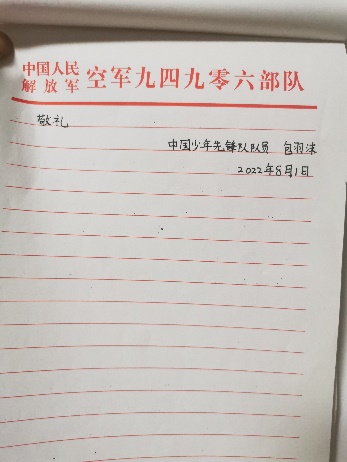 中国人民
解放军 空军九四九零六部队
敬礼
中国少年先锋队队员 包羽沫
2022年8月1日